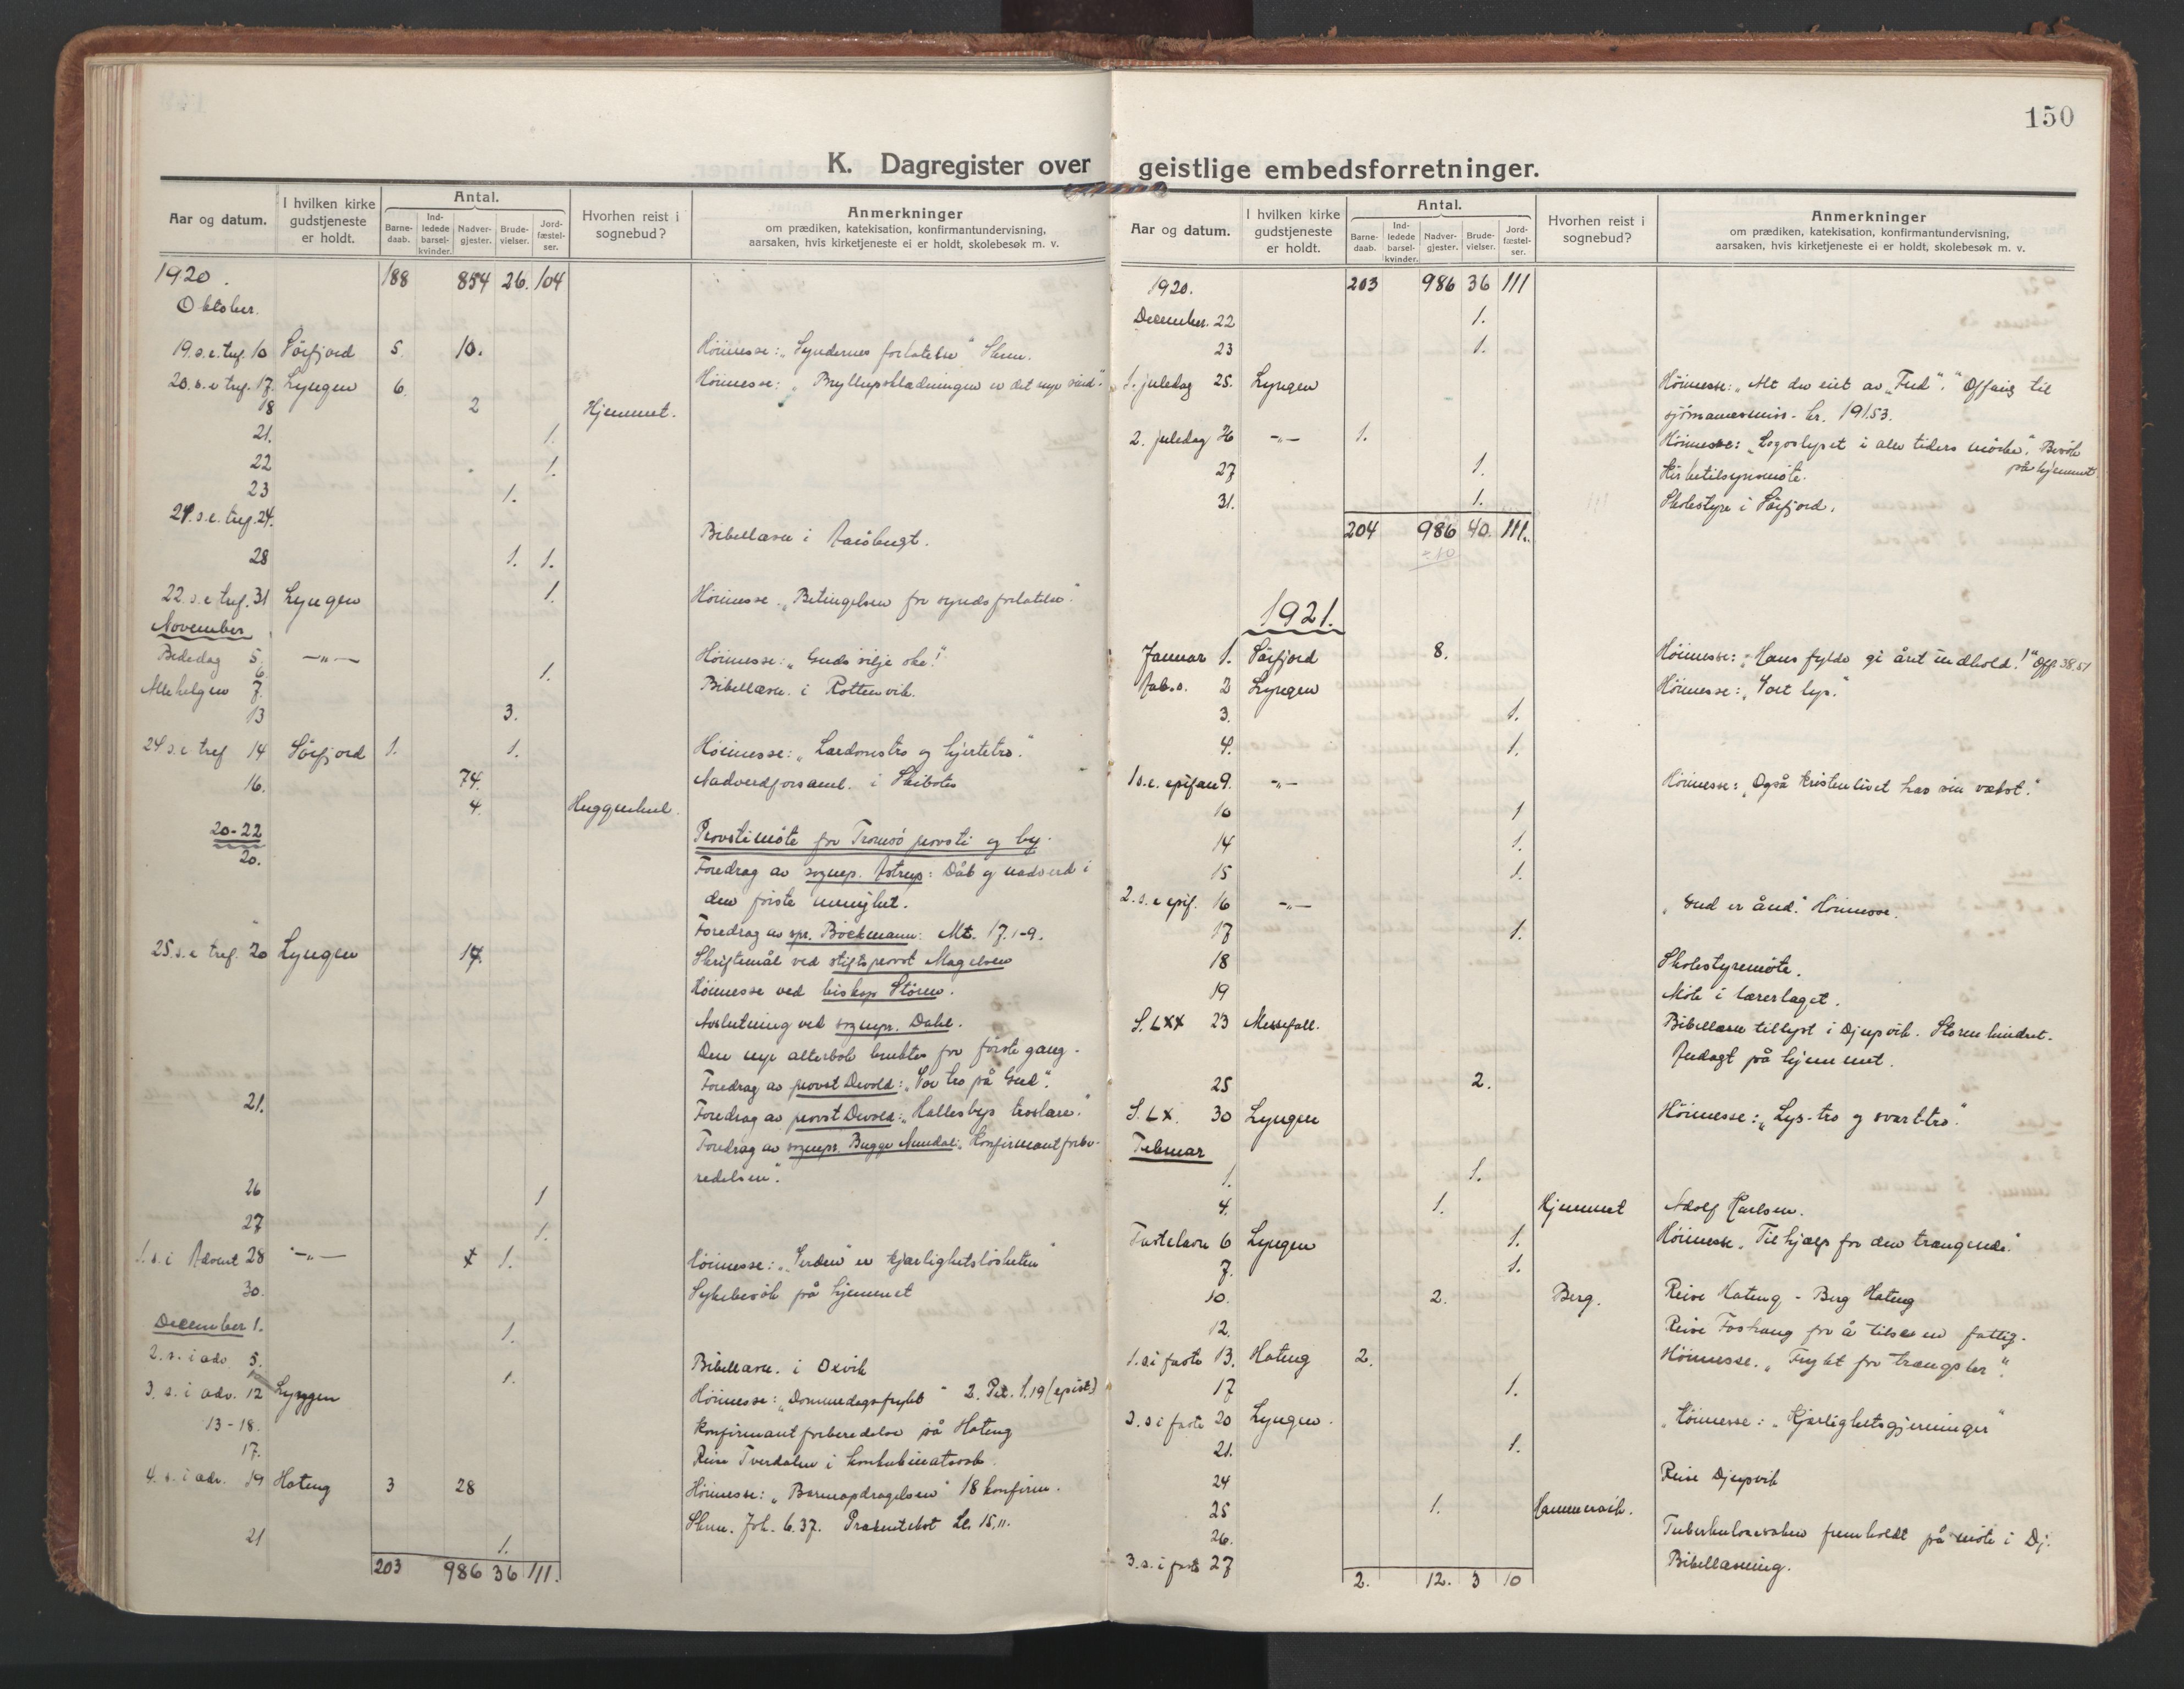 150
K. Dagregister over geistlige embedsforretninger.
Aar og datum. I hvilken kirke gudstjeneste er holdt. Antal. Barnedaab. Indledede barselkvinder. Nadvergjester. Brudevielser. Jordfæstelser. Hvorhen reist i sognebud? Anmerkninger om prædiken, katekisation, konfirmantundervisning, aarsaken, hvis kirketjeneste ei er holdt, skolebesøk m. v.
1920. 188 854 26. 104
Oktober.
19.s.e.tref. 10 Sörfjord 5. 10. Höimesse: "Syndernes forlatelse" Skrm.
20.s.e tref. 17. Lyngen 6. Höimesse: "Bryllupsklædningen er det nye sind".
18 2 Hjemmet.
21. 1.
22 1.
23 1.
21.s.e.tref. 24. Bibellæsn i
28 1. 1.
22.s.e tref. 31 Lyngen 1. Höimesse. "Betingelsen for synds forlatelse".
November
Bededag 5. —"— Höimesse: "Guds vilje ske!"
6. 1.
Allehelgen 7. Bibellæsn. i Rottenvik.
13 3.
24 s.e tref 14 Sörfjord 1. 1. Höimesse: "Lærdomstro og hjertetro."
16. 74. Nadverdforsaml. i Skibotn
4. Huggenhul.
20-22 Provstimöte for Tromsö provsti og by.
20. Foredrag av sognep. Astrup: Dåb og nadverd i
den förste menighet.
Foredrag av spr. Böckmann: Mt. 17.1-9.
25.s.e tref. 20 Lyngen 17. Skriftemål ved stiftsprovst Magelsen
Höimesse ved biskop Stören.
Avslutning ved sognepr. Dahl.
Den nye alterbok bruktes for förste gang.
Foredrag av provst Devold: "Vor tro på Gud".
21. Foredrag av provst Devold: "Hallesbys troslære."
Foredrag av sognepr. Bugge Amundal: "Konfirmantforbe-
redelsen".
26 1
27 1.
1.s.i Advent 28 —"— 1. Höimesse: "Verden er kjærlighetslösheten"
30. Sykebesök på hjemmet
December 1. 1.
2.s.i adv. 5. 1. Bibellæsn. i Oxvik
3.s.i adv. 12 Lyngen Höimesse: "Dommedagsfrykt" 2. Pet. 1.19 (epist.)
13-18. Konfirmantforberedelse på Hateng
17. Reise Tverdalen i konkubinatssak.
4.s.i adv. 19 Hateng 3 28 Höimesse: "Barneopdragelsen" 18 konfirm.
Skrm. Joh. 6.37. Prækentekst Lk. 15,11.
21 1.
203 986 36 111.
Aar og datum. I hvilken kirke gudstjeneste er holdt. Antal. Barnedaab. Indledede barselkvinder. Nadvergjester. Brudevielser. Jordfæstelser. Hvorhen reist i sognebud? Anmerkninger om prædiken, katekisation, konfirmantundervisning, aarsaken, hvis kirketjeneste ei er holdt, skolebesøk m. v.
1920. 203 986 36 111
December. 22 1.
23 1.
1. juledag 25. Lyngen Höimesse: "Alt du eiet av "Fred". Offring til
sjömannsmiss. kr. 191.53.
2. juledag 26 —"— 1. Höimesse: "Logoslyset i alle tiders mörke". Besök
på hjemmet
27 1. Kirketilsynsmöte.
31. 1. Skolestyre i Sörfjord.
204 986 40. 111.
1921.
Januar 1. Sörfjord 8. Höimesse: "Hans fylde gi året indhold!" Off. 38.51
2 Lyngen Höimesse: "Vort lys."
3. 1.
4. 1.
1s.e. epifan 9. —"— Höimesse: "Også kristenlivet has sin vækst."
10 1
14 1.
15 1.
2.s.e epif. 16 —"— "Gud er ånd." Höimesse.
17 1.
18 Skolestyremöte.
19 Möte i lærerlaget.
S. LXX 23 Messefall. Bibellæsn tillyst i Djupvik. Storm hindret.
Andagt på hjemmet.
25 2.
S. LX. 30 Lyngen Höimesse: "Lys-tro og svart-tro".
Februar
1. 1.
4. 1. Hjemmet Adolf Karlsen.
Fastelavn 6 Lyngen 1. Höimesse. "Til hjælp for den trængende."
7. 1.
10. 2. Berg. Reise Hateng - Berg Hateng
12. Reise for å tilse en fattig.
1.s.i faste 13. Hateng 2. Höimesse. "Frykt for trængsler".
17 1.
2.s.i faste 20 Lyngen. "Höimesse: "Kjærlighetsgjerninger"
21. 1.
24 Reise Djupvik
25 1. Hammervik.
26. Tuberkulosesaken fremholdt på möte i Dj.
3.s.i faste 27 Bibellæsning.
2. 12. 3 10